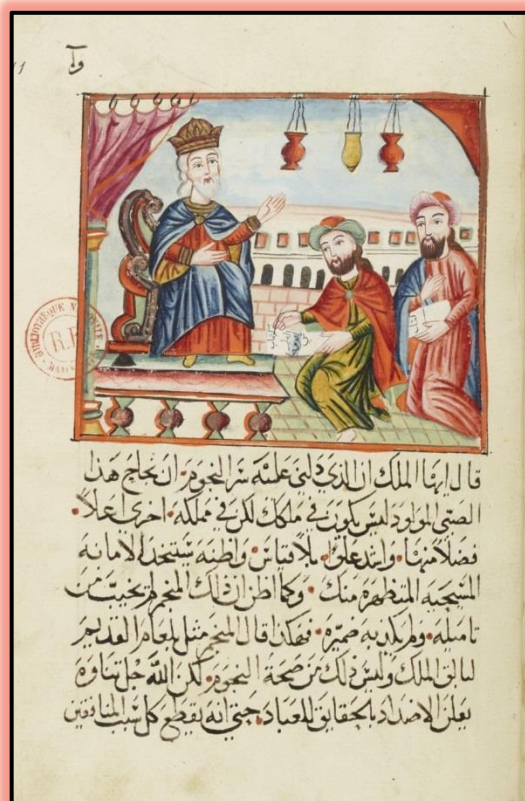 قال ايها الملك ان الذي دلني علمته سر النجوم ان نجاح هذا
الصبي المولود ليس يكون في ملكك لكن في مملكه اخرى اعلا
فضلاً منها وابتدعلوا بلا قياس واظنه سيتخد الامانه
المسيحيه المتظهره منك وكما اظن ان ذلك المنجم لم يخيب من
تامیله ولم يكذبه ضميره فهكذا قال المنجم مثل بلعام القديم
ليس ذلك من صحة النجوم لكن الله جل ثناوه
يعلن الاضداد بالحقايق للعباد حتى انه يقطع كل سبب المنافقين